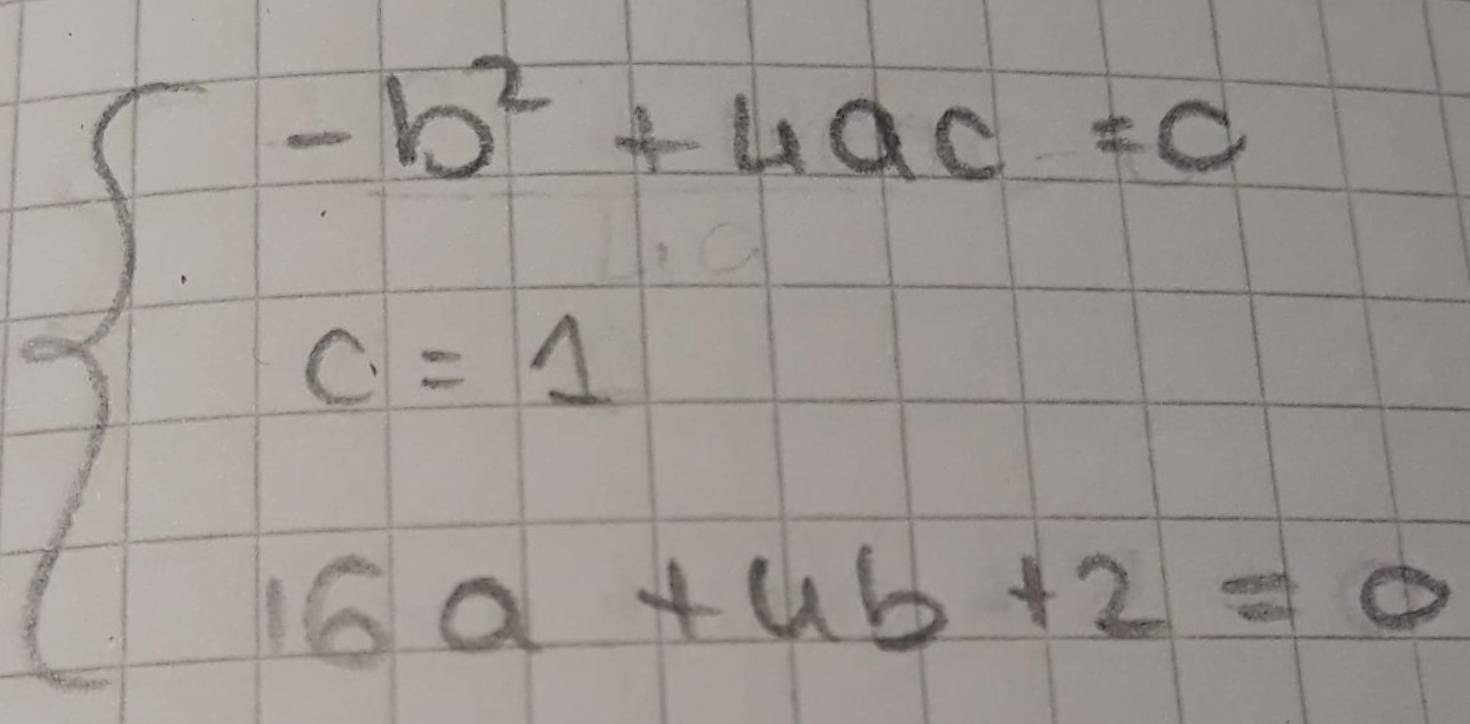 -b² + 4ac = c
c = 1
16a + 4b + 2 = 0